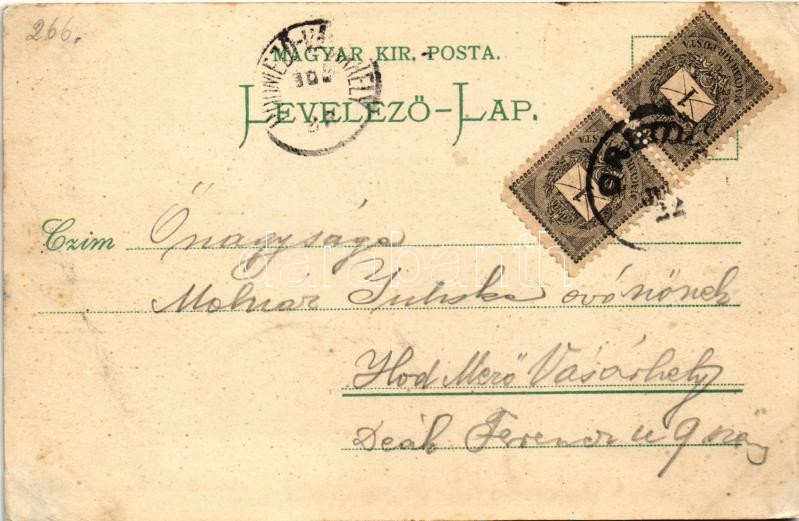 266.
MAGYAR KIR. POSTA.
LEVELEZŐ-LAP.
1
1
22
Czim Őnagysága
Molnár Juliska óvónőnek
Hod Mező Vásárhely
Deák Ferencz u 9 szám
darabanth